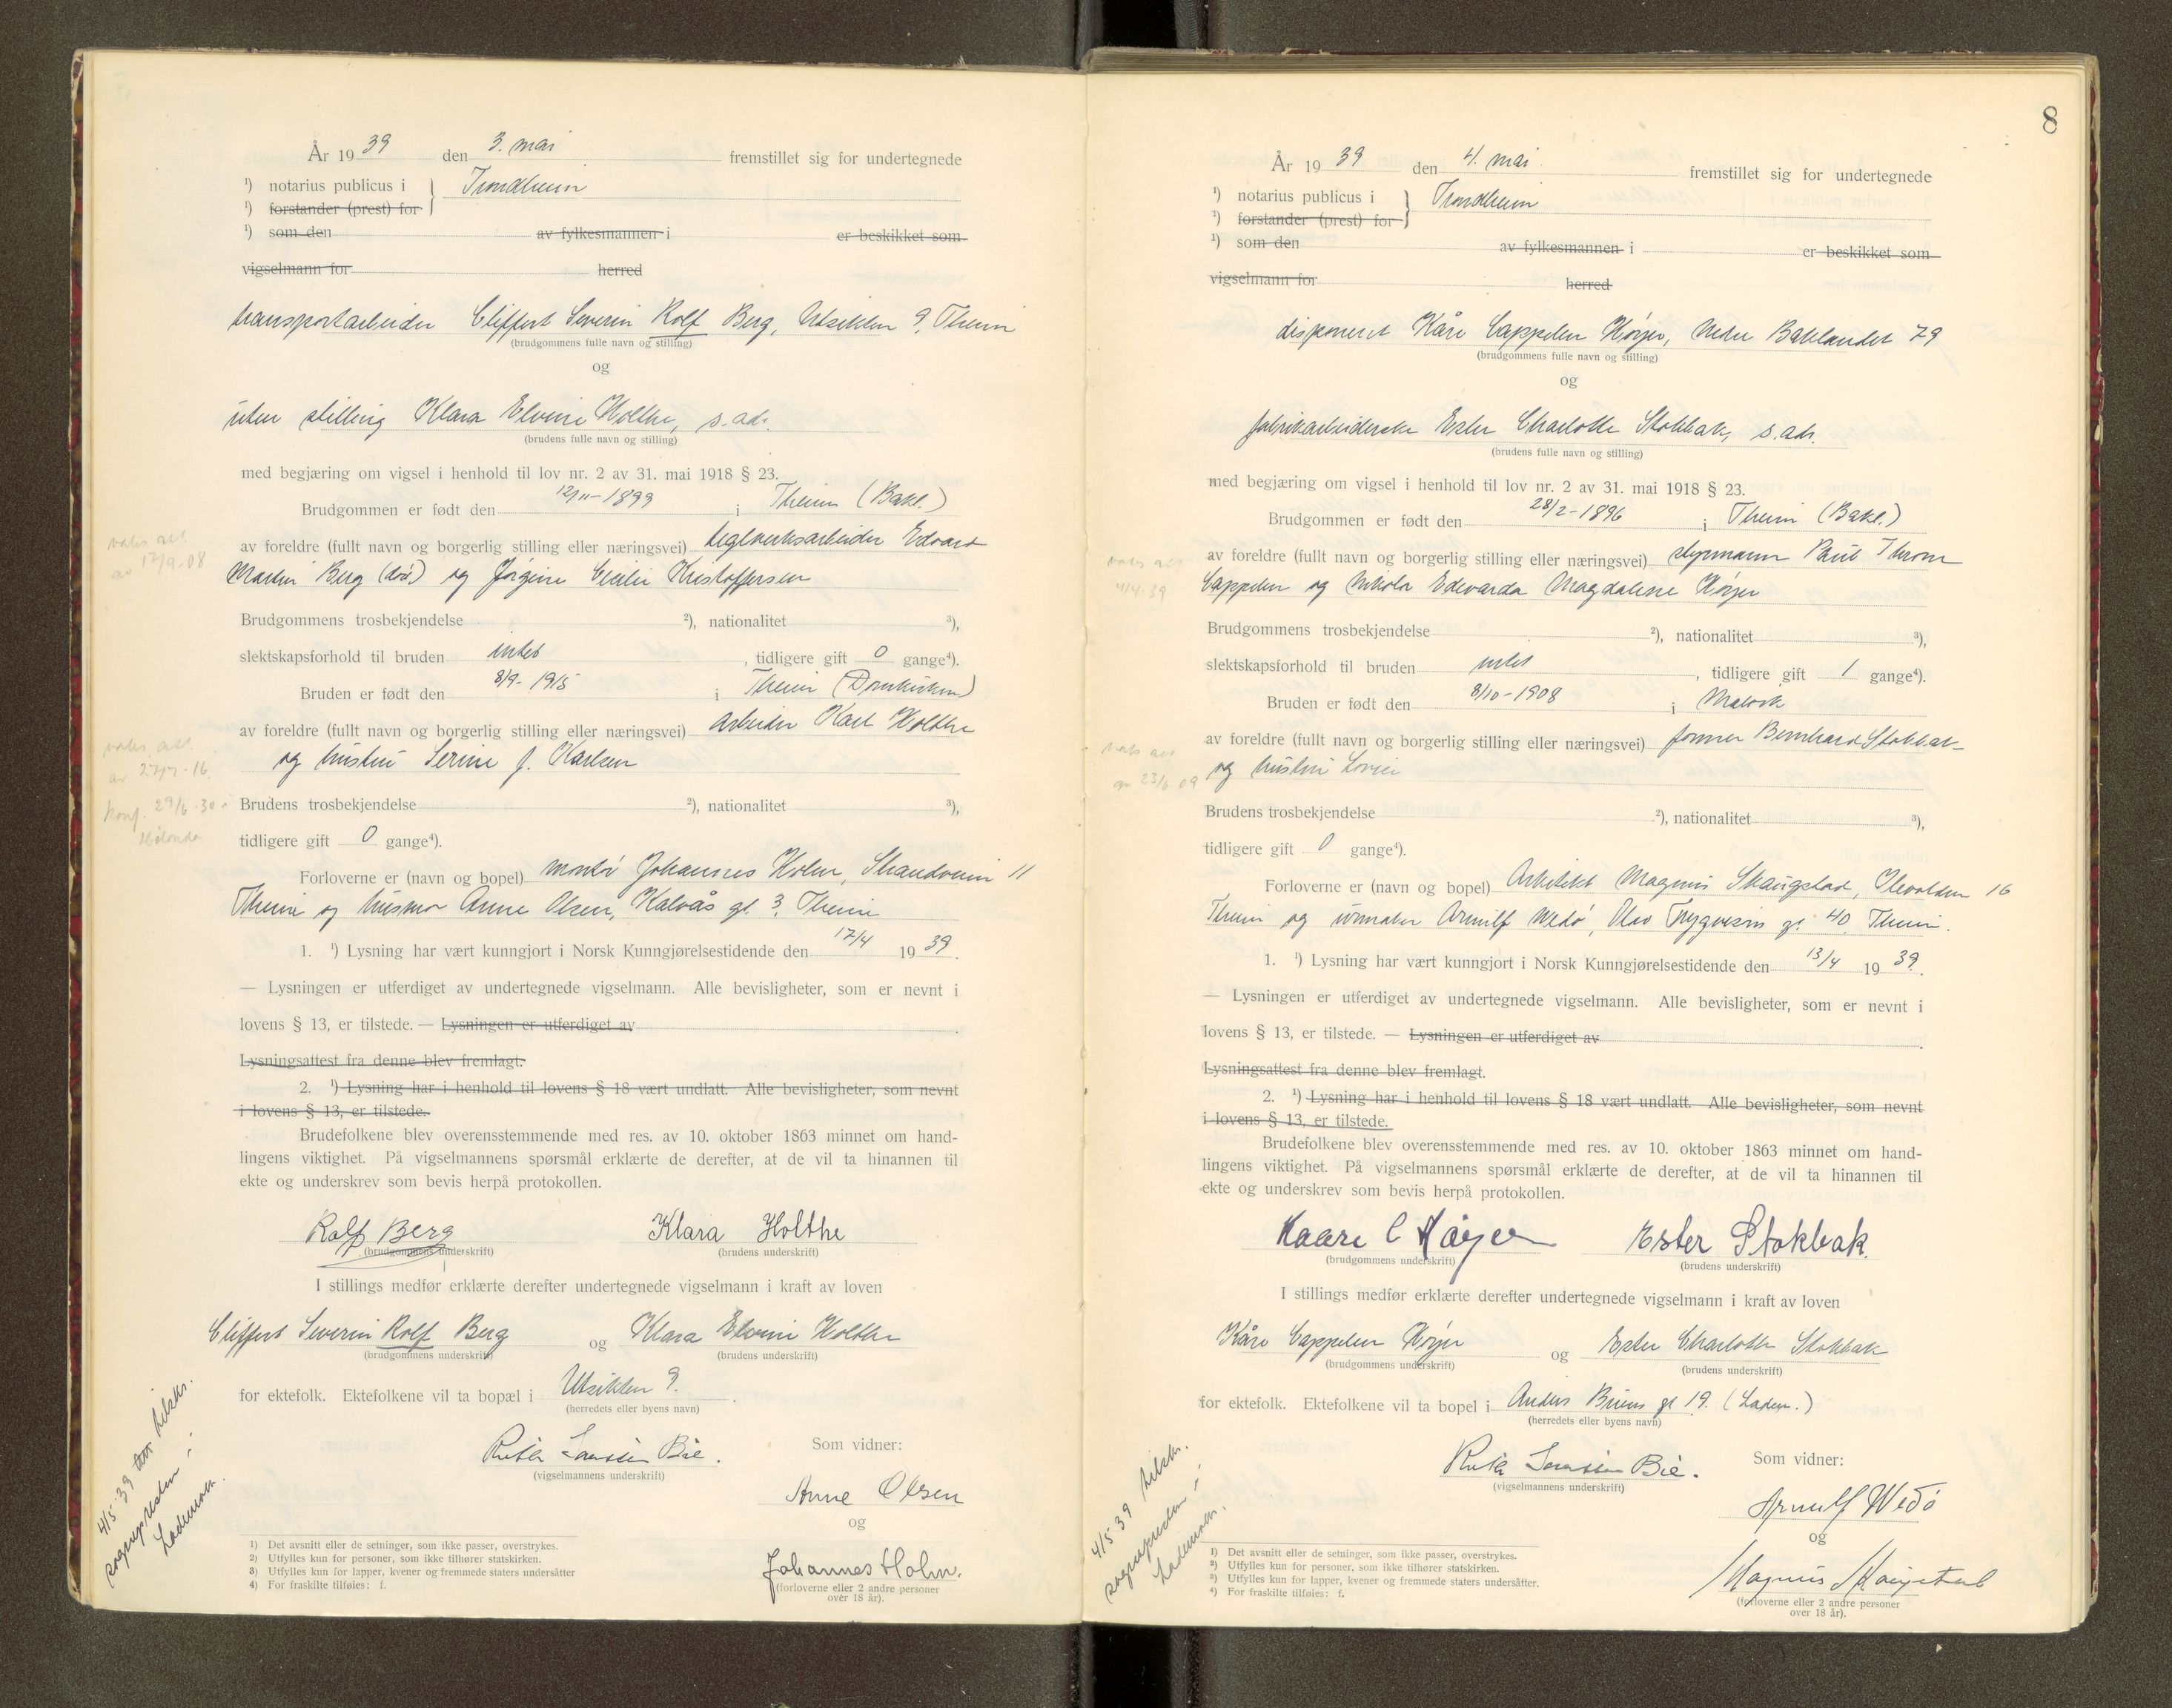 År 1939 den 3. mai fremstillet sig for undertegnede
¹) notarius publicus i } Trondheim
¹) forstander (prest) for
¹) som den av fylkesmannen i er beskikket som
vigselmann for herred
transportarbeider Cliffert Severin Rolf Berg, Utsikten 9, Theim
(brudgommens fulle navn og stilling)
og
uten stilling Klara Elvine Holthe, s. adr.
(brudens fulle navn og stilling)
med begjæring om vigsel i henhold til lov nr. 2 av 31. mai 1918 § 23.
Brudgommen er født den 12/11-1899 i Theim (Bakl.)
av foreldre (fullt navn og borgerlig stilling eller næringsvei) teglverksarbeider Edvard
Martin Berg (død) og Jørgine Cecilie Kristoffersen
Brudgommens trosbekjendelse ²), nationalitet ³),
slektskapsforhold til bruden intet, tidligere gift 0 gange⁴).
Bruden er født den 8/9-1915 i Theim (Domkirken)
av foreldre (fullt navn og borgerlig stilling eller næringsvei) Arbeider Karl Holthe
og hustru Serine f. Karlsen
Brudens trosbekjendelse ²), nationalitet ³),
tidligere gift 0 gange⁴).
Forloverne er (navn og bopel) montør Johannes Holm, Strandveien 11
Theim og husmor Anne Olsen, Kalvås gt. 3, Theim
1. ¹) Lysning har vært kunngjort i Norsk Kunngjørelsestidende den 17/4 1939.
— Lysningen er utferdiget av undertegnede vigselmann. Alle bevisligheter, som er nevnt i
lovens § 13, er tilstede. — Lysningen er utferdiget av
Lysningsattest fra denne blev fremlagt.
2. ¹) Lysning har i henhold til lovens § 18 vært undlatt. Alle bevisligheter, som nevnt
i lovens § 13, er tilstede.
Brudefolkene blev overensstemmende med res. av 10. oktober 1863 minnet om hand-
lingens viktighet. På vigselmannens spørsmål erklærte de derefter, at de vil ta hinannen til
ekte og underskrev som bevis herpå protokollen.
Rolf Berg Klara Holthe
(brudgommens underskrift) (brudens underskrift)
I stillings medfør erklærte derefter undertegnede vigselmann i kraft av loven
Cliffert Severin Rolf Berg og Klara Elvine Holthe
(brudgommens underskrift) (brudens underskrift)
for ektefolk. Ektefolkene vil ta bopæl i Utsikten 9.
(herredets eller byens navn)
Ruth Sanssen Bie.
(vigselmannens underskrift)
Som vidner:
Anne Olsen
og
Johannes Holm.
(forloverne eller 2 andre personer
over 18 år).
¹) Det avsnitt eller de setninger, som ikke passer, overstrykes.
²) Utfylles kun for personer, som ikke tilhører statskirken.
³) Utfylles kun for lapper, kvener og fremmede staters undersåtter
⁴) For fraskilte tilføies: f.
vaks. att.
av 17/9-08
vaks. att.
av 27/7-16.
konf. 29/6-30 i
Hølonda
4/5 39 tilskr.
sognepresten i
Lademoen.
8
År 1939 den 4. mai fremstillet sig for undertegnede
¹) notarius publicus i } Trondheim
¹) forstander (prest) for
¹) som den av fylkesmannen i er beskikket som
vigselmann for herred
disponent Kåre Cappelen Høyer, Nedre Baklandet 79
(brudgommens fulle navn og stilling)
og
fabrikarbeiderske Ester Charlotte Stokbak, s. adr.
(brudens fulle navn og stilling)
med begjæring om vigsel i henhold til lov nr. 2 av 31. mai 1918 § 23.
Brudgommen er født den 28/2-1896 i Theim (Bakl.)
av foreldre (fullt navn og borgerlig stilling eller næringsvei) styrmann Paul Thron
Cappelen og Nikola Edevarda Magdalene Høyer
Brudgommens trosbekjendelse ²), nationalitet ³),
slektskapsforhold til bruden intet, tidligere gift 1 gange⁴).
Bruden er født den 8/10-1908 i Malvik
av foreldre (fullt navn og borgerlig stilling eller næringsvei) former Bernhard Stokbak
og hustru Lovise
Brudens trosbekjendelse ²), nationalitet ³),
tidligere gift 0 gange⁴).
Forloverne er (navn og bopel) Arkitekt Magnus Skaugstad, Ilevolden 16
Theim og urmaker Arnulf Wedø, Olav Trygvesøns gt. 40, Theim.
1. ¹) Lysning har vært kunngjort i Norsk Kunngjørelsestidende den 13/4 1939.
— Lysningen er utferdiget av undertegnede vigselmann. Alle bevisligheter, som er nevnt i
lovens § 13, er tilstede. — Lysningen er utferdiget av
Lysningsattest fra denne blev fremlagt.
2. ¹) Lysning har i henhold til lovens § 18 vært undlatt. Alle bevisligheter, som nevnt
i lovens § 13, er tilstede.
Brudefolkene blev overensstemmende med res. av 10. oktober 1863 minnet om hand-
lingens viktighet. På vigselmannens spørsmål erklærte de derefter, at de vil ta hinannen til
ekte og underskrev som bevis herpå protokollen.
Kaare C Høyer Ester Stokbak.
(brudgommens underskrift) (brudens underskrift)
I stillings medfør erklærte derefter undertegnede vigselmann i kraft av loven
Kåre Cappelen Høyer og Ester Charlotte Stokbak
(brudgommens underskrift) (brudens underskrift)
for ektefolk. Ektefolkene vil ta bopel i Anders Buens gt 19. (Ladem.)
(herredets eller byens navn)
Ruth Sanssen Bie.
(vigselmannens underskrift)
Som vidner:
Arnulf Wedø
og
Magnus Skaugstad
(forloverne eller 2 andre personer
over 18 år).
¹) Det avsnitt eller de setninger, som ikke passer, overstrykes.
²) Utfylles kun for personer, som ikke tilhører statskirken.
³) Utfylles kun for lapper, kvener og fremmede staters undersåtter.
⁴) For fraskilte tilføies: f.
vaks. att.
4/4-39
vaks att
av 23/6-09
4/5 39 tilskr.
sognepresten i
Lademoen.